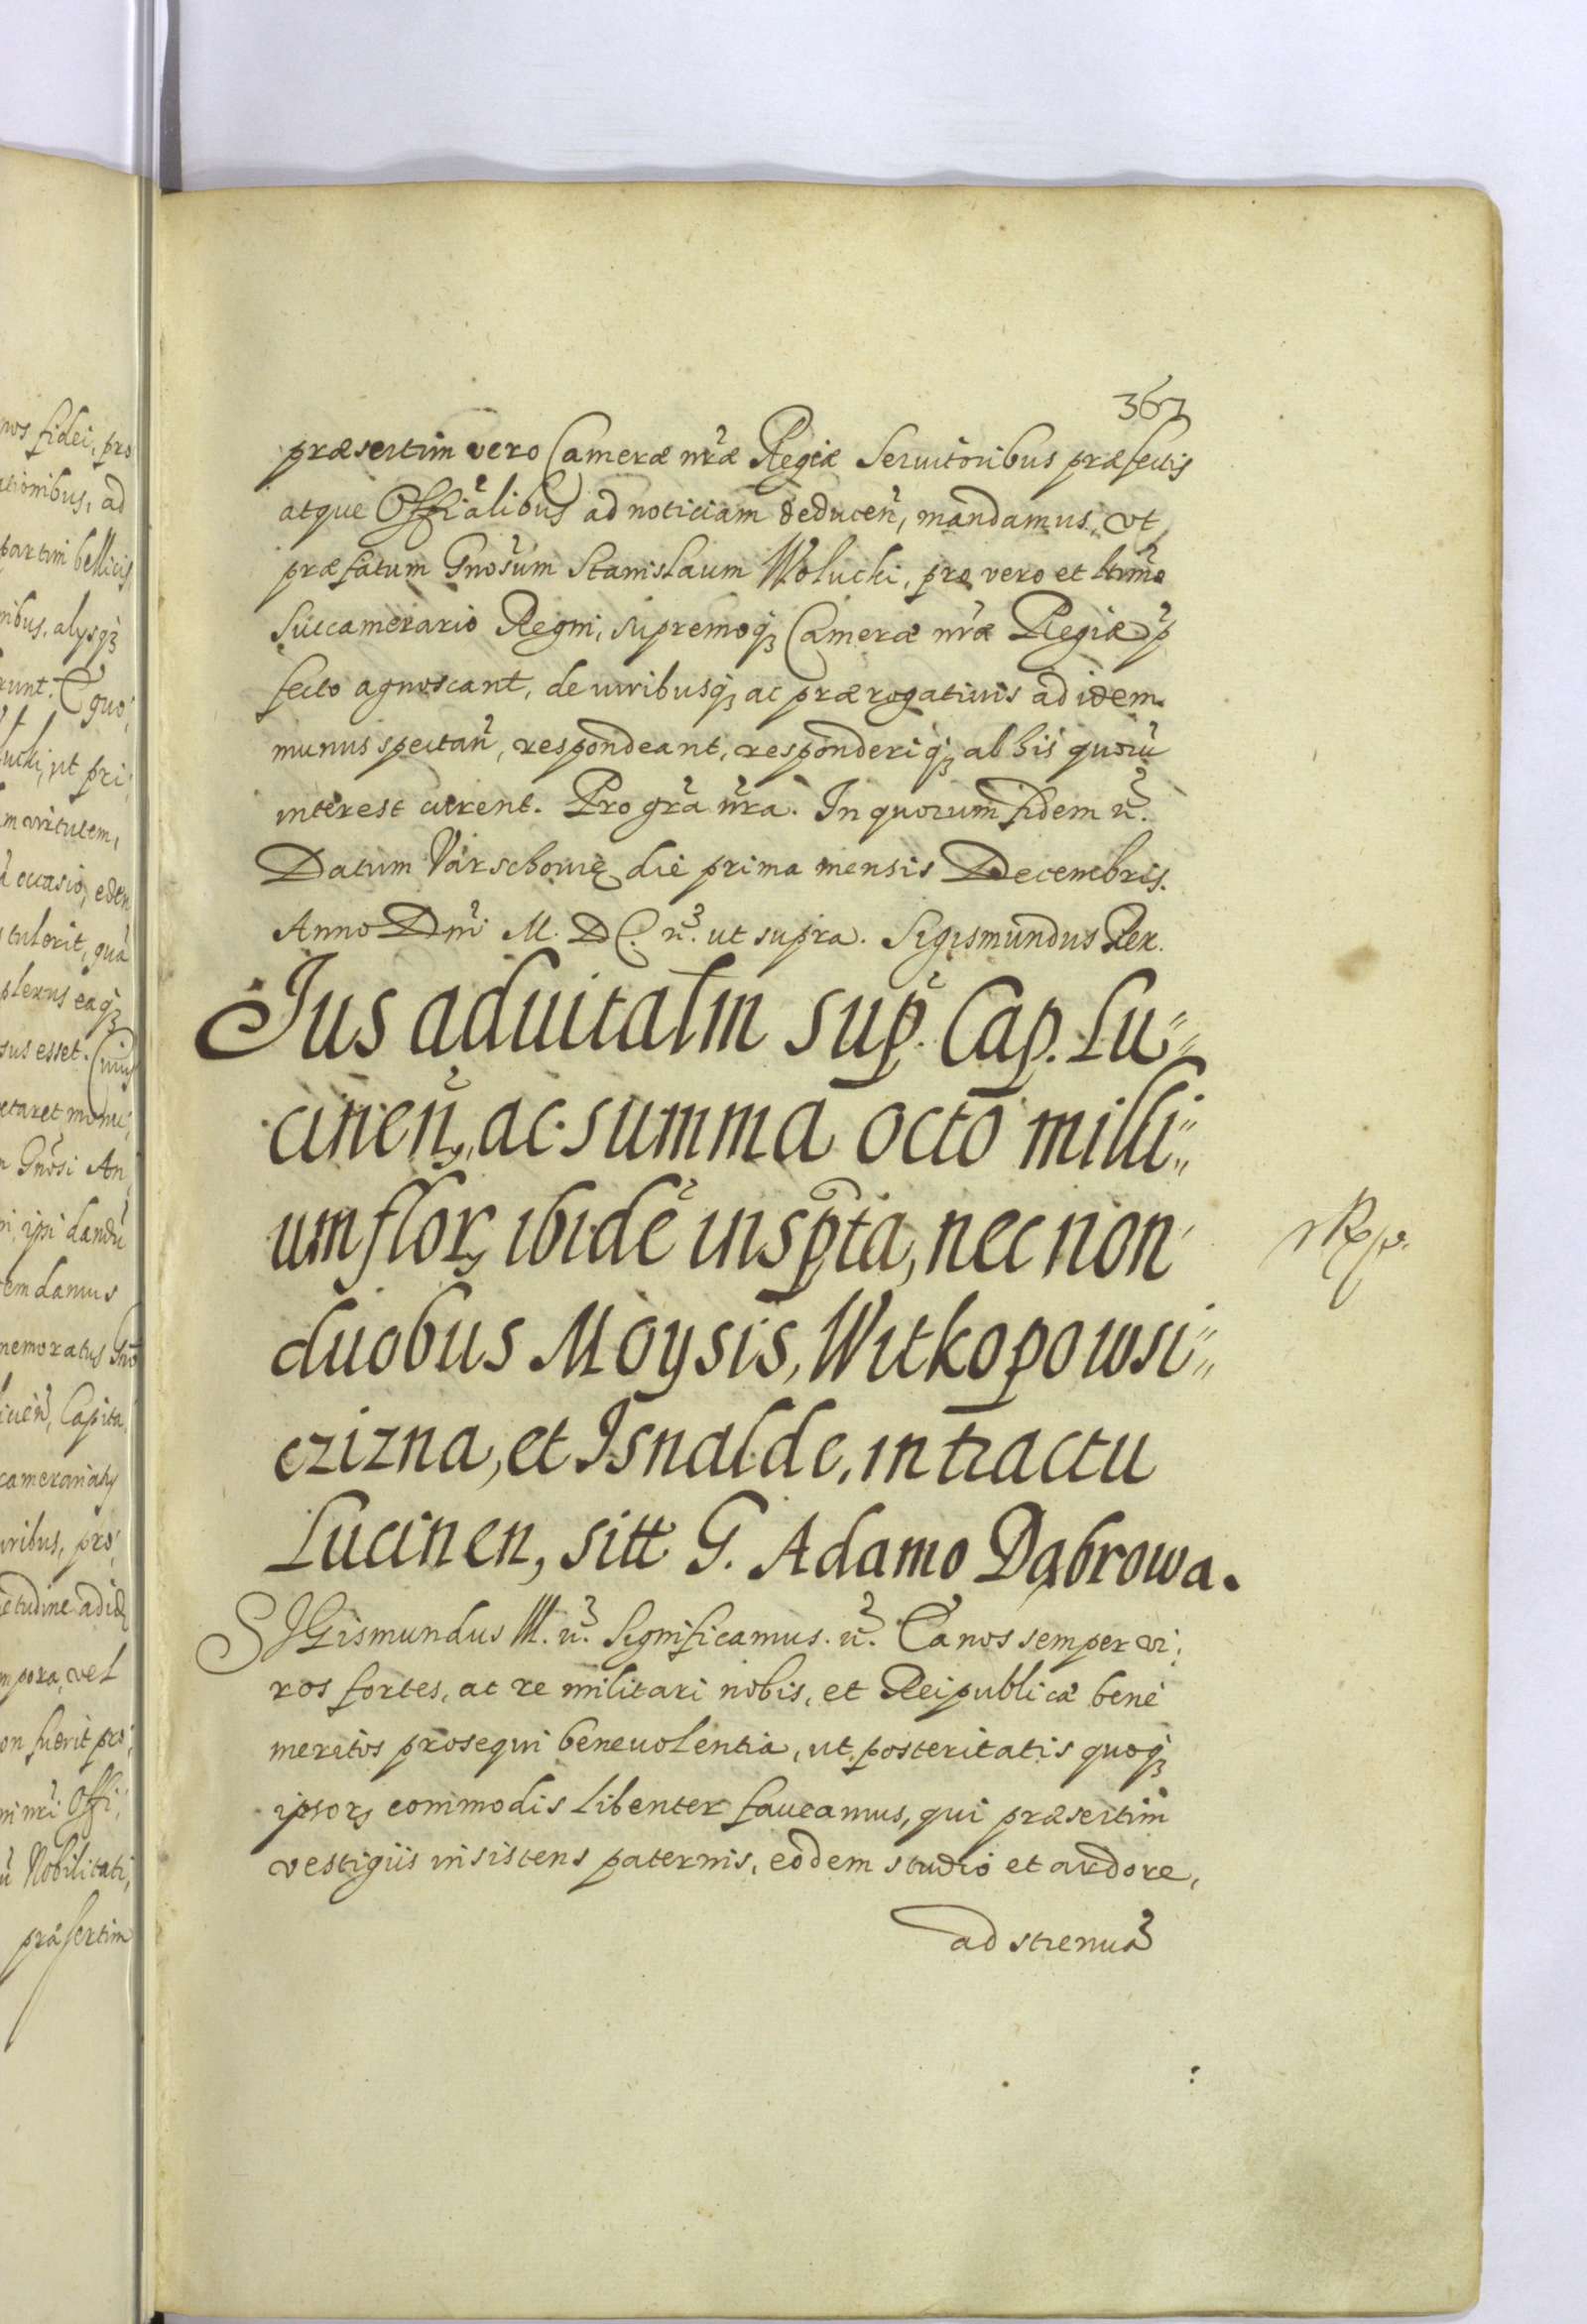 nos fidei, pro
ationibus, ad
partim bellicis
nibus, alysq3
runt. Quo
lucki, ut pri
m virtutem,
occasio, eden
tulerit, qua
plexus eaq3
sus esset. Cuius
etaret munu
Gnosi An
ipsi dandu
em damus
memoratus Gno
Capita
uribus, pro
etudine ad id
mpora, vel
on fuerit pro
ni nri Offi
Nobilitati,
præsertim
367
præsertim vero Cameræ nræ Regiæ Seruitoribus præfectis
atque Offialibus ad noticiam deducen, mandamus, vt
præfatum Gnosum Stanislaum Wolucki, pro vero et ltimo
Succamerario Regni, supremoq3 Cameræ nræ Regiæ p
fecto agnoscant, de iuribusq3 ac prærogatiuis ad idem
munus spectan, respondeant, responderiq3 ab his quoru
interest curent. Pro gra nra. In quorum fidem u.
Datum Varschouię die prima mensis Decembris.
Anno Dni M. D C. u. ut supra. Sigismundus Rex.
Jus aduitalm sup. Cap. Lu=
cinen, ac summa octo milli=
um flor, ibide inspta, nec non
duobus Moysis, Witkopowsi=
czizna, et Isnalde, in tractu
Lucinen, sitt G. Adamo Dąbrowa.
SIGismundus III. u. Significamus. u. Ea nos semper vi:
ros fortes, ac re militari nobis, et Reipublicæ bene
meritos prosequi beneuolentia, ut posteritatis quoq3
ipsor, commodis libenter faueamus, qui præsertim
vestigiis insistens paternis, eodem studio et ardore,
ad strenua